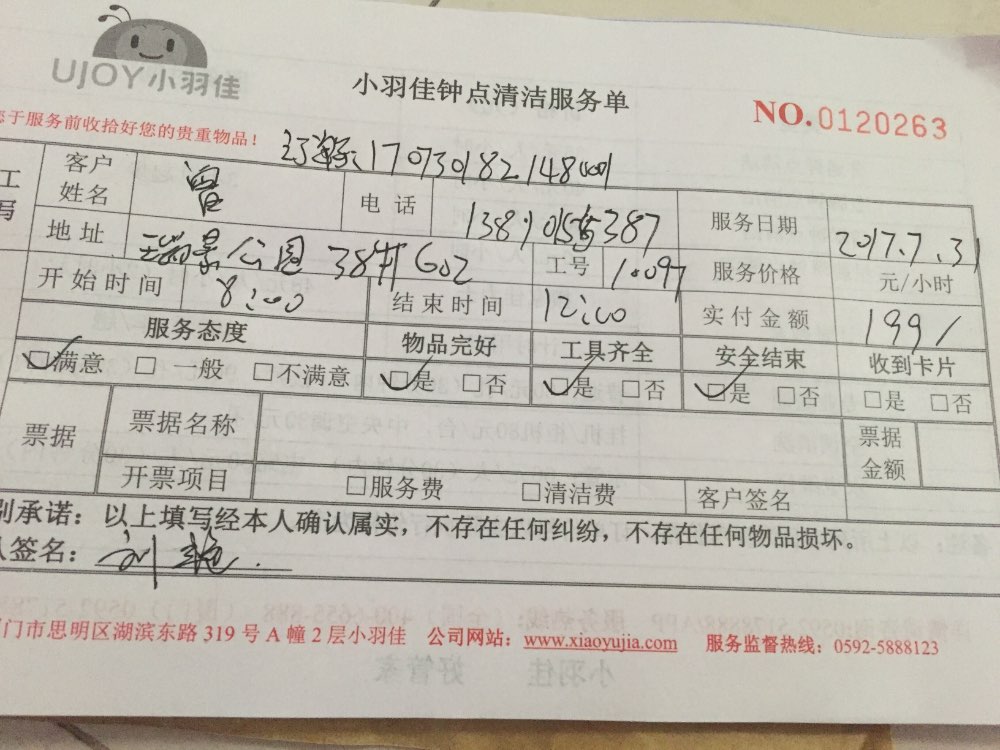 UJOY小羽佳
小羽佳钟点清洁服务单
NO.0120263
于服务前收拾好您的贵重物品!
170730182148001
客户姓名 曾 电话 服务日期 2017.7.31
地址 瑞景公园 602 工号 10097 服务价格 元/小时
开始时间 8:00 结束时间 12:00 实付金额 199/
服务态度 物品完好 工具齐全 安全结束 收到卡片
☑满意 □一般 □不满意 ☑是 □否 ☑是 □否 ☑是 □否 □是 □否
票据 票据名称 票据金额
开票项目 □服务费 □清洁费 客户签名
承诺:以上填写经本人确认属实,不存在任何纠纷,不存在任何物品损坏。
签名:刘艳
门市思明区湖滨东路 319 号 A 幢 2 层小羽佳 公司网站:www.xiaoyujia.com 服务监督热线:0592-5888123
小羽佳 好管家